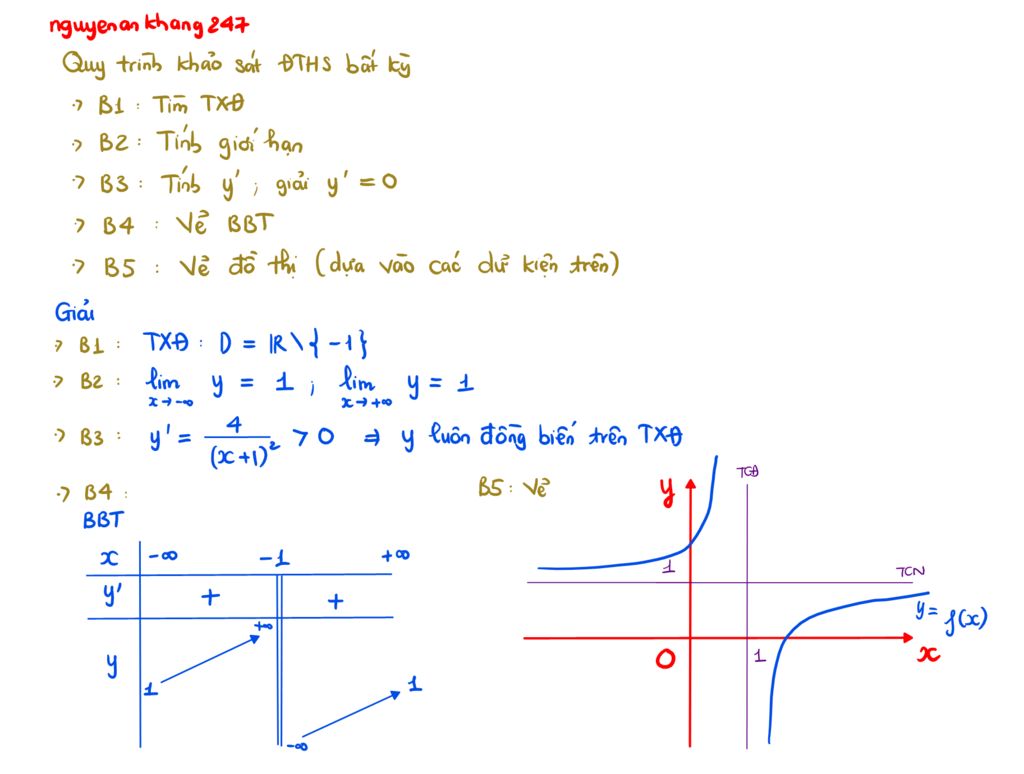 nguyenankhang247
Quy trình khảo sát ĐTHS bất kỳ
-> B1 : Tìm TXĐ
-> B2 : Tính giới hạn
-> B3 : Tính y' ; giải y' = 0
-> B4 : Vẽ BBT
-> B5 : Vẽ đồ thị (dựa vào các dữ kiện trên)
Giải
-> B1 : TXĐ : D = ℝ \ { -1 }
-> B2 : lim x→-∞ y = 1 ; lim x→+∞ y = 1
-> B3 : y' = 4/(x+1)² > 0 ⇒ y luôn đồng biến trên TXĐ
-> B4 :
BBT
x -∞ -1 +∞
y' + +
y 1 +∞ -∞ 1
B5 : Vẽ
y
TCĐ
1
TCN
y = f(x)
O
1
x